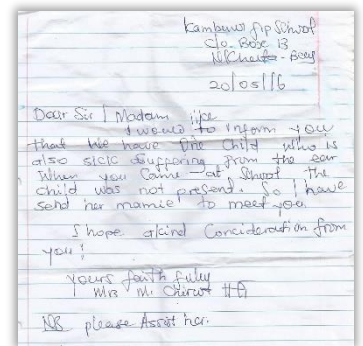 Kambuwi f/p School
c/o. Box 13
Nkhata-Bay
20/05/16
Dear Sir / Madam
like
I would to inform you
that We have one child who is
also sick suffering from the ear
When you came at School the
child was not present. So I have
send her mamie to meet you
I hope akind Concideration from
you!
Yours faith fully
Mrs M. Chirwa H/T
NB please Assist her.